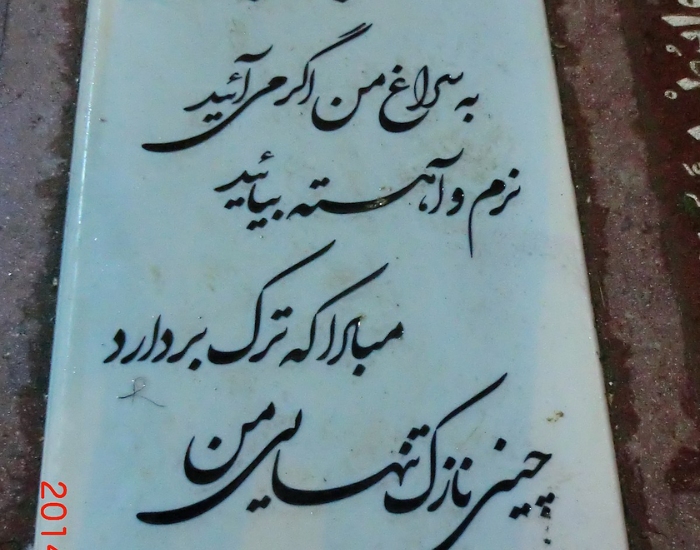 به سراغ من اگر می آئید
نرم و آهسته بیائید
مبادا که ترک بردارد
چینی نازک تنهایی من
2014